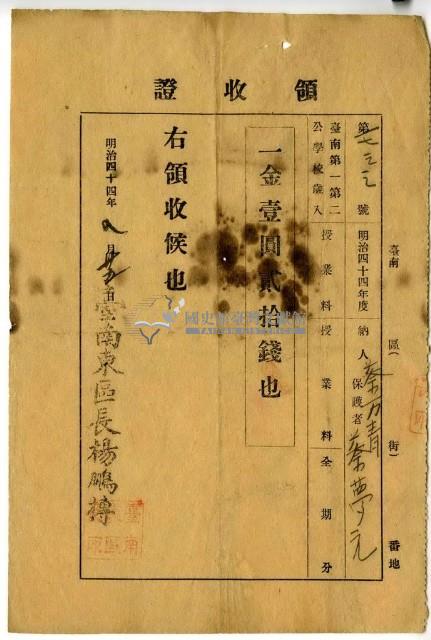 領收證
臺南 區 街 番地
第七三三號 明治四十四年度 納人 蔡万青
保護者 蔡夢元
臺南第一第二公學校歲入 授業料 授業料 全期分
一金壹圓貳拾錢也
右領收候也
明治四十四年 月 日
臺南東區長楊鵬摶
國史館臺灣文獻館
TAIWAN HISTORICA